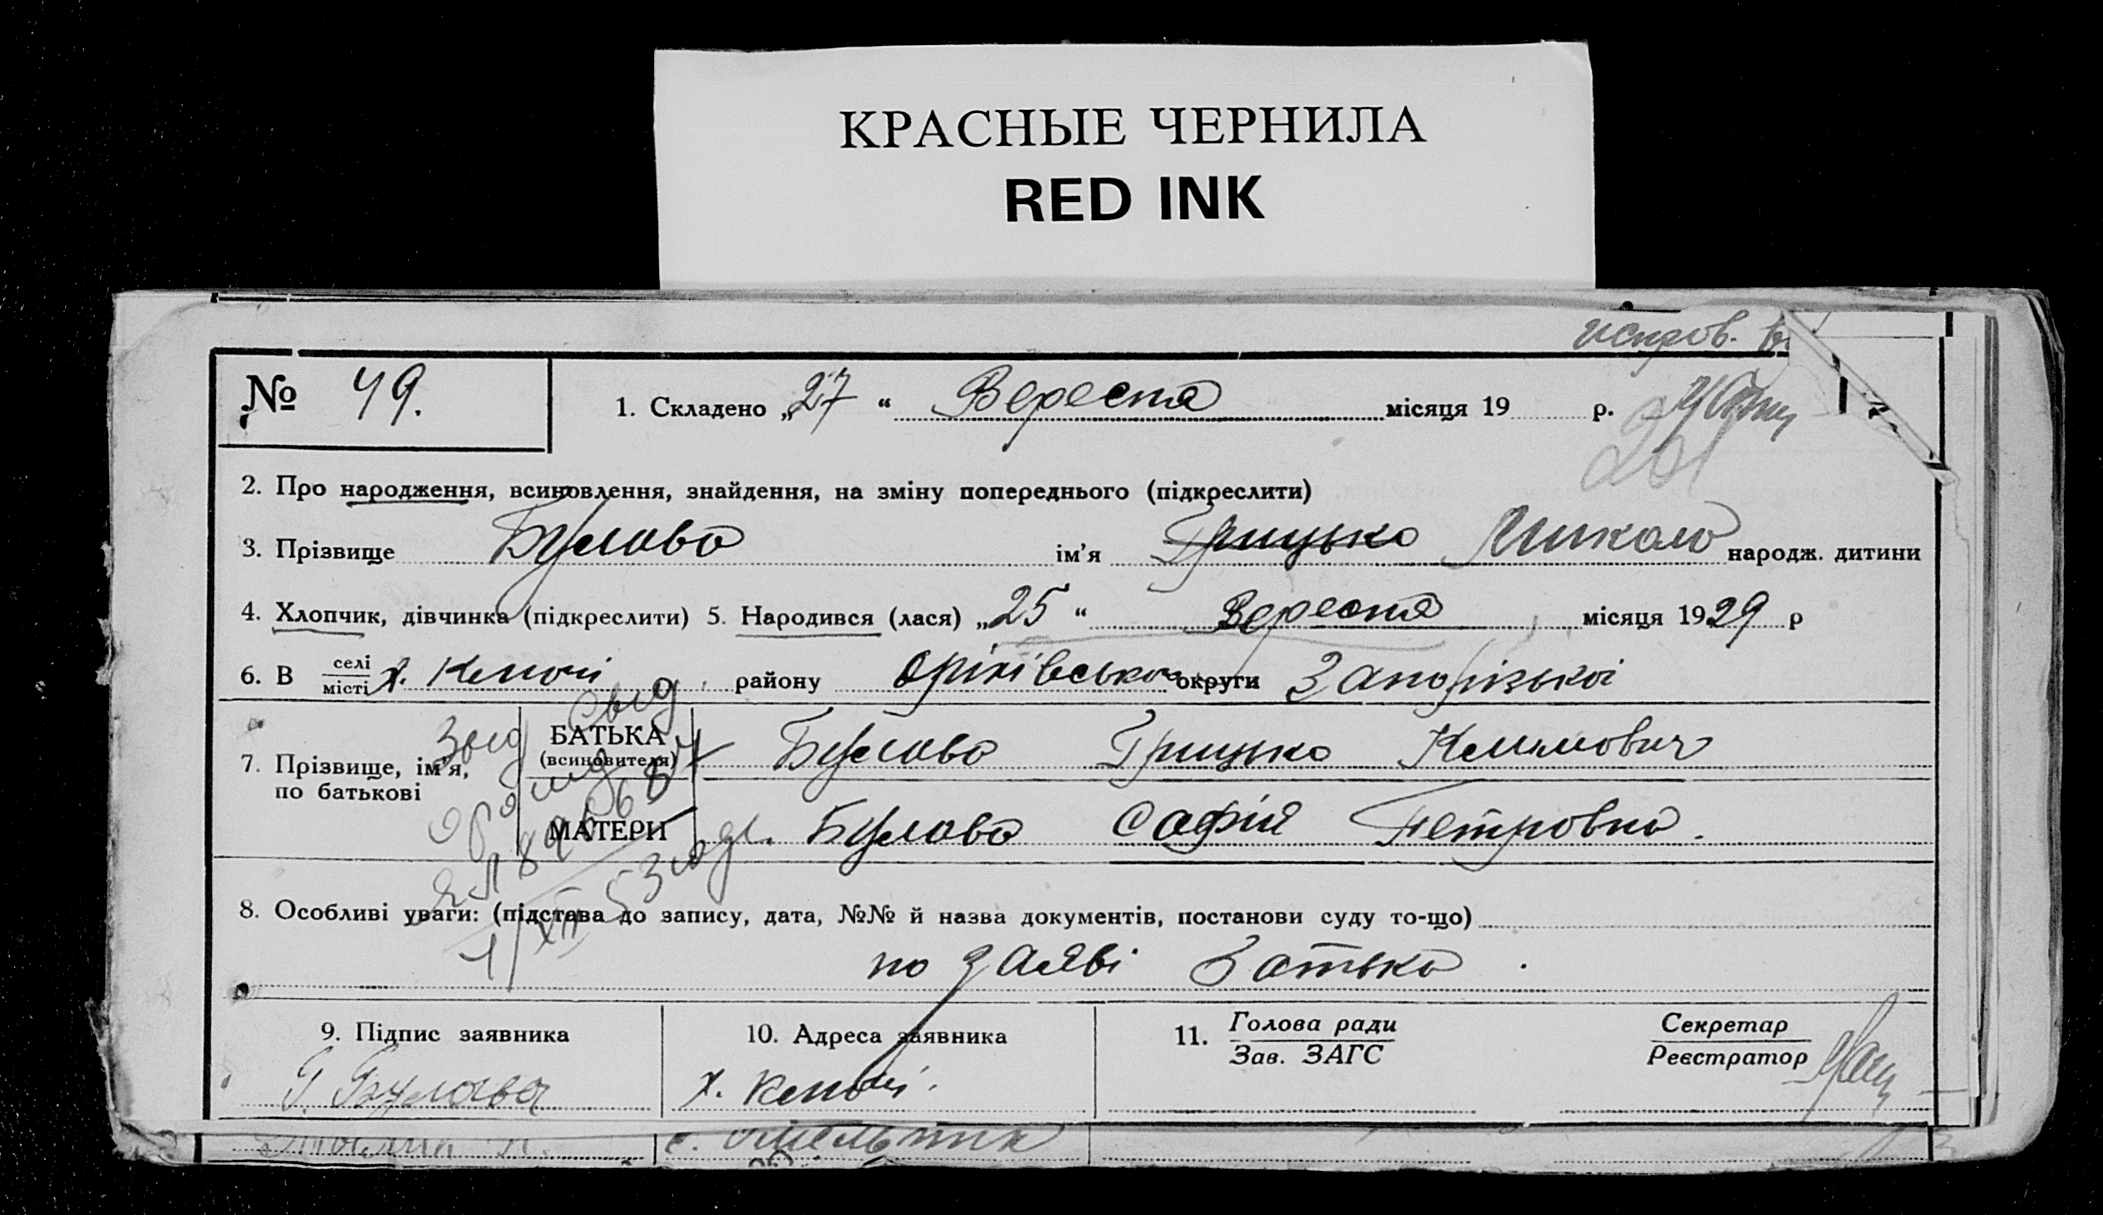 КРАСНЫЕ ЧЕРНИЛА
RED INK
исправ.
№ 49.
1. Складено „27“ Вересня місяця 19 р.
2. Про народження, всиновлення, знайдення, на зміну попереднього (підкреслити)
3. Прізвище Булава ім’я Грицько Микола народж. дитини
4. Хлопчик, дівчинка (підкреслити) 5. Народився (лася) „25“ Вересня місяця 1929 р
6. В селі місті х. район у Оріхівського округи Запорізької
7. Прізвище, ім’я, по батькові
БАТЬКА (всиновителя) Булава Грицько Климович
МАТЕРИ Булава Софія Петровна.
8. Особливі уваги: (підстава до запису, дата, №№ й назва документів, постанови суду то-що)
по заяві батька.
9. Підпис заявника
10. Адреса заявника
11. Голова ради
Зав. ЗАГС
Секретар
Реєстратор
Г. Булава
х.
с. Омельник